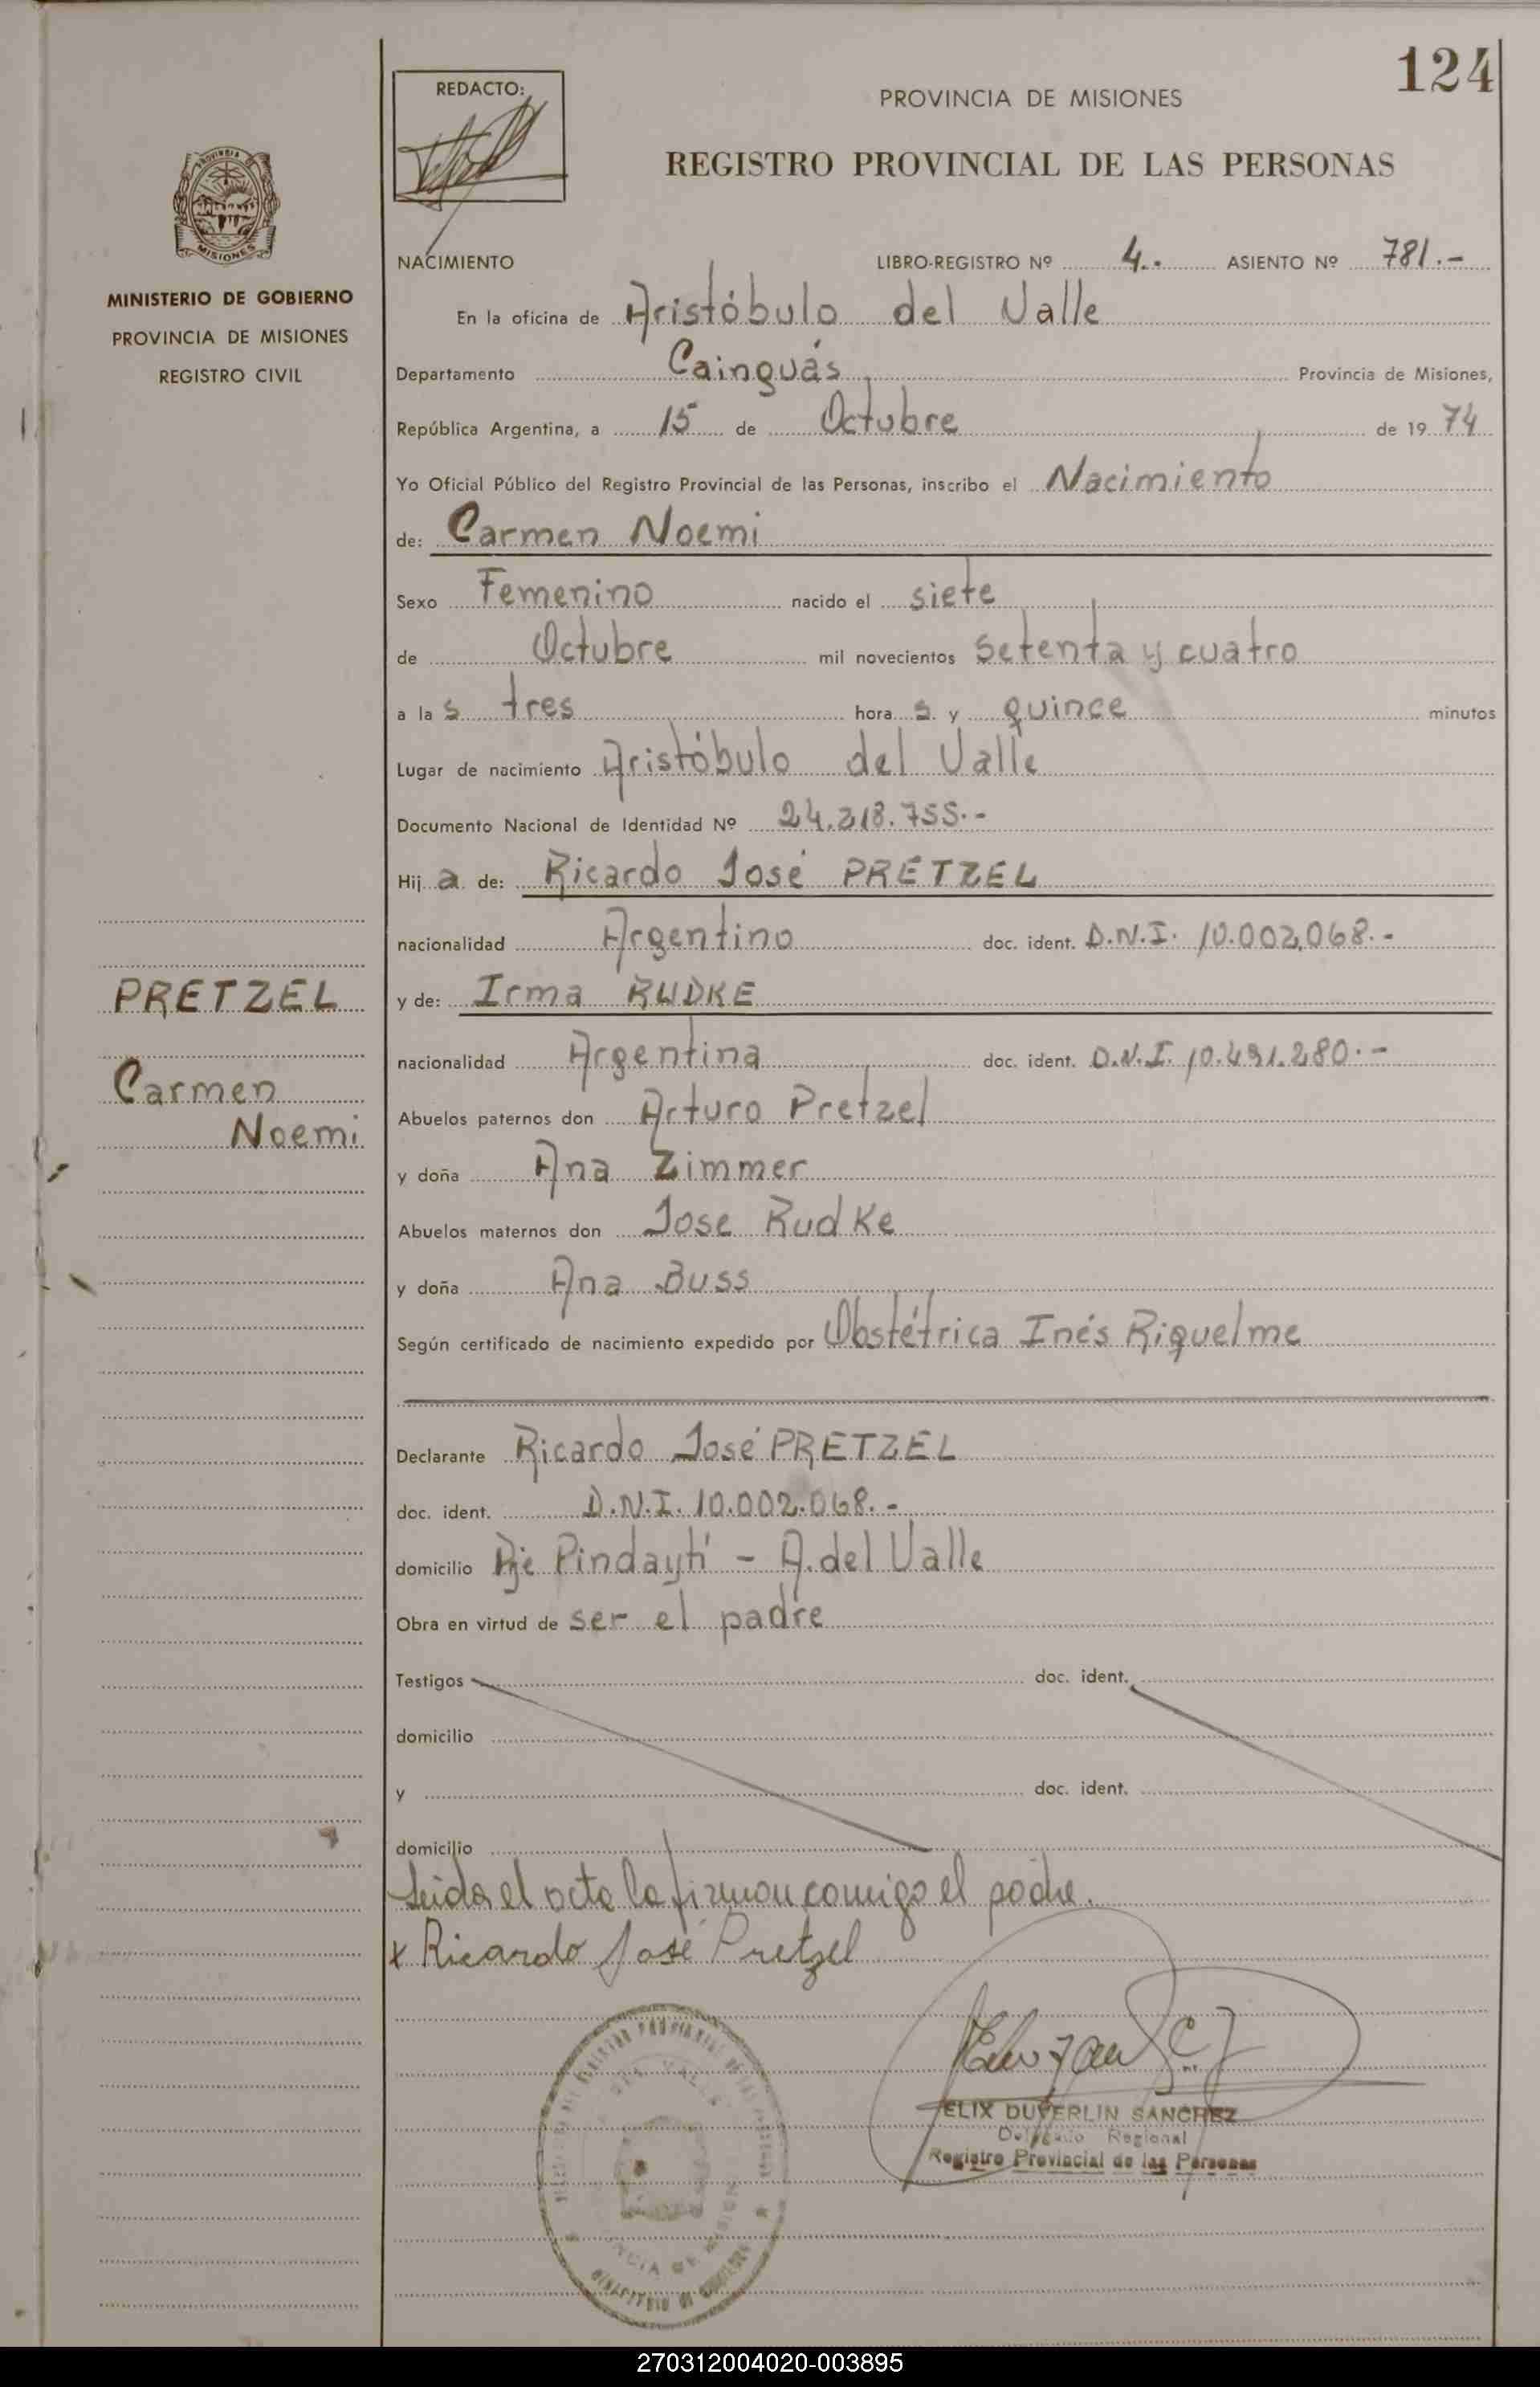 124
REDACTO:
PROVINCIA DE MISIONES
REGISTRO PROVINCIAL DE LAS PERSONAS
PROVINCIA DE
MISIONES
MINISTERIO DE GOBIERNO
PROVINCIA DE MISIONES
REGISTRO CIVIL
NACIMIENTO LIBRO-REGISTRO Nº 4.- ASIENTO Nº 781.-
En la oficina de Aristóbulo del Valle
Departamento Cainguás Provincia de Misiones,
República Argentina, a 15 de Octubre de 1974
Yo Oficial Público del Registro Provincial de las Personas, inscribo el Nacimiento
de: Carmen Noemi
Sexo Femenino nacido el siete
de Octubre mil novecientos setenta y cuatro
a las tres horas y quince minutos
Lugar de nacimiento Aristóbulo del Valle
Documento Nacional de Identidad Nº 24.218.755.-
Hija de: Ricardo José PRETZEL
nacionalidad Argentino doc. ident. D.N.I. 10.002,068.-
PRETZEL
y de: Irma RUDKE
nacionalidad Argentina doc. ident. D.N.I. 10.491.280.-
Carmen
Noemi
Abuelos paternos don Arturo Pretzel
y doña Ana Zimmer
Abuelos maternos don Jose Rudke
y doña Ana Buss
Según certificado de nacimiento expedido por Obstétrica Inés Riquelme
Declarante Ricardo José PRETZEL
doc. ident. D.N.I. 10.002.068.-
domicilio Pje Pindaytí - A. del Valle
Obra en virtud de ser el padre
Testigos doc. ident.
domicilio
y doc. ident.
domicilio
Leida el acta la firman comigo el padre.
x Ricardo José Pretzel
ELIX DUVERLIN SANCHEZ
Delegado Regional
Registro Provincial de las Personas
270312004020-003895